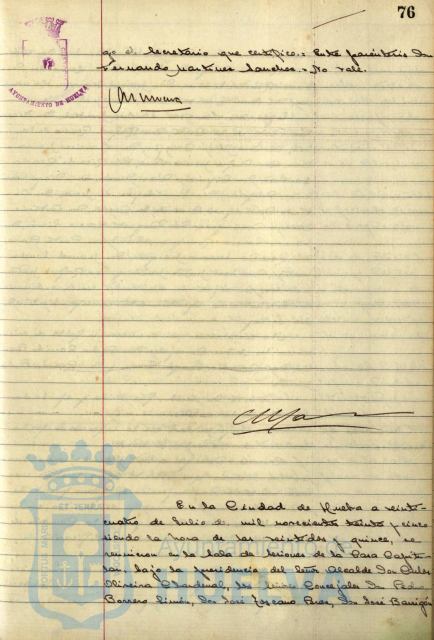 76
AYUNTAMIENTO DE HUELVA
go el Secretario que certifico.= Entre parentesis Don
Fernando Martinez Sanchez.= No vale.
En la Ciudad de Huelva a veinte
cuatro de Julio de mil novecientos treinta y cinco
siendo la hora de las veintidos y quince, se
reunieron en la Sala de Sesiones de la Casa Capitu-
lar, bajo la presidencia del Señor Alcalde Don
Oliveira los Concejales Don Pedro
Borrero Limón, Don José Don José Barrigón